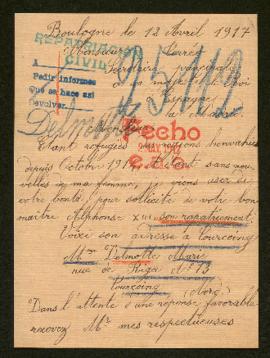 Boulogne le 12 Avril 1917
Monsieur
REPATRIACION
CIVIL
A
Pedir informes
que se hace así
devolver.
95112
Delmotte
Hecho
Etant refugiés
depuis Octobre 1914, étant sans nou-
velles de ma femme, je viens user de
votre bonté, pour solliciter de votre bon
maître Alphonse XIII son rapatriement.
Voici son adresse à Tourcoing
Mme Delmotte Marie
rue de No 73
Tourcoing (Nord)
Dans l'attente d'une réponse favorable
recevez Mr mes respectueuses